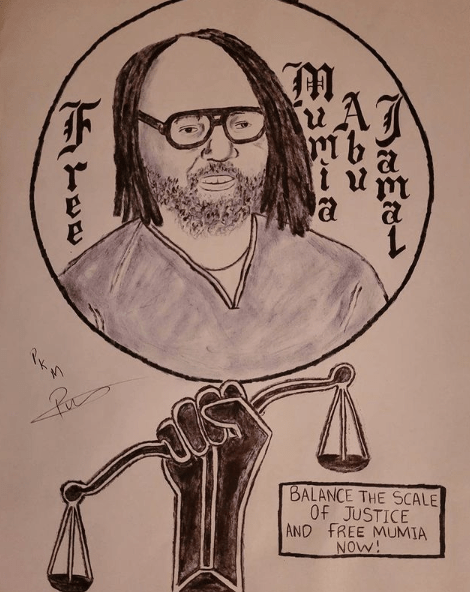 Free
Mumia
Abu
Jamal
PKM
BALANCE THE SCALE
OF JUSTICE
AND FREE MUMIA
NOW!